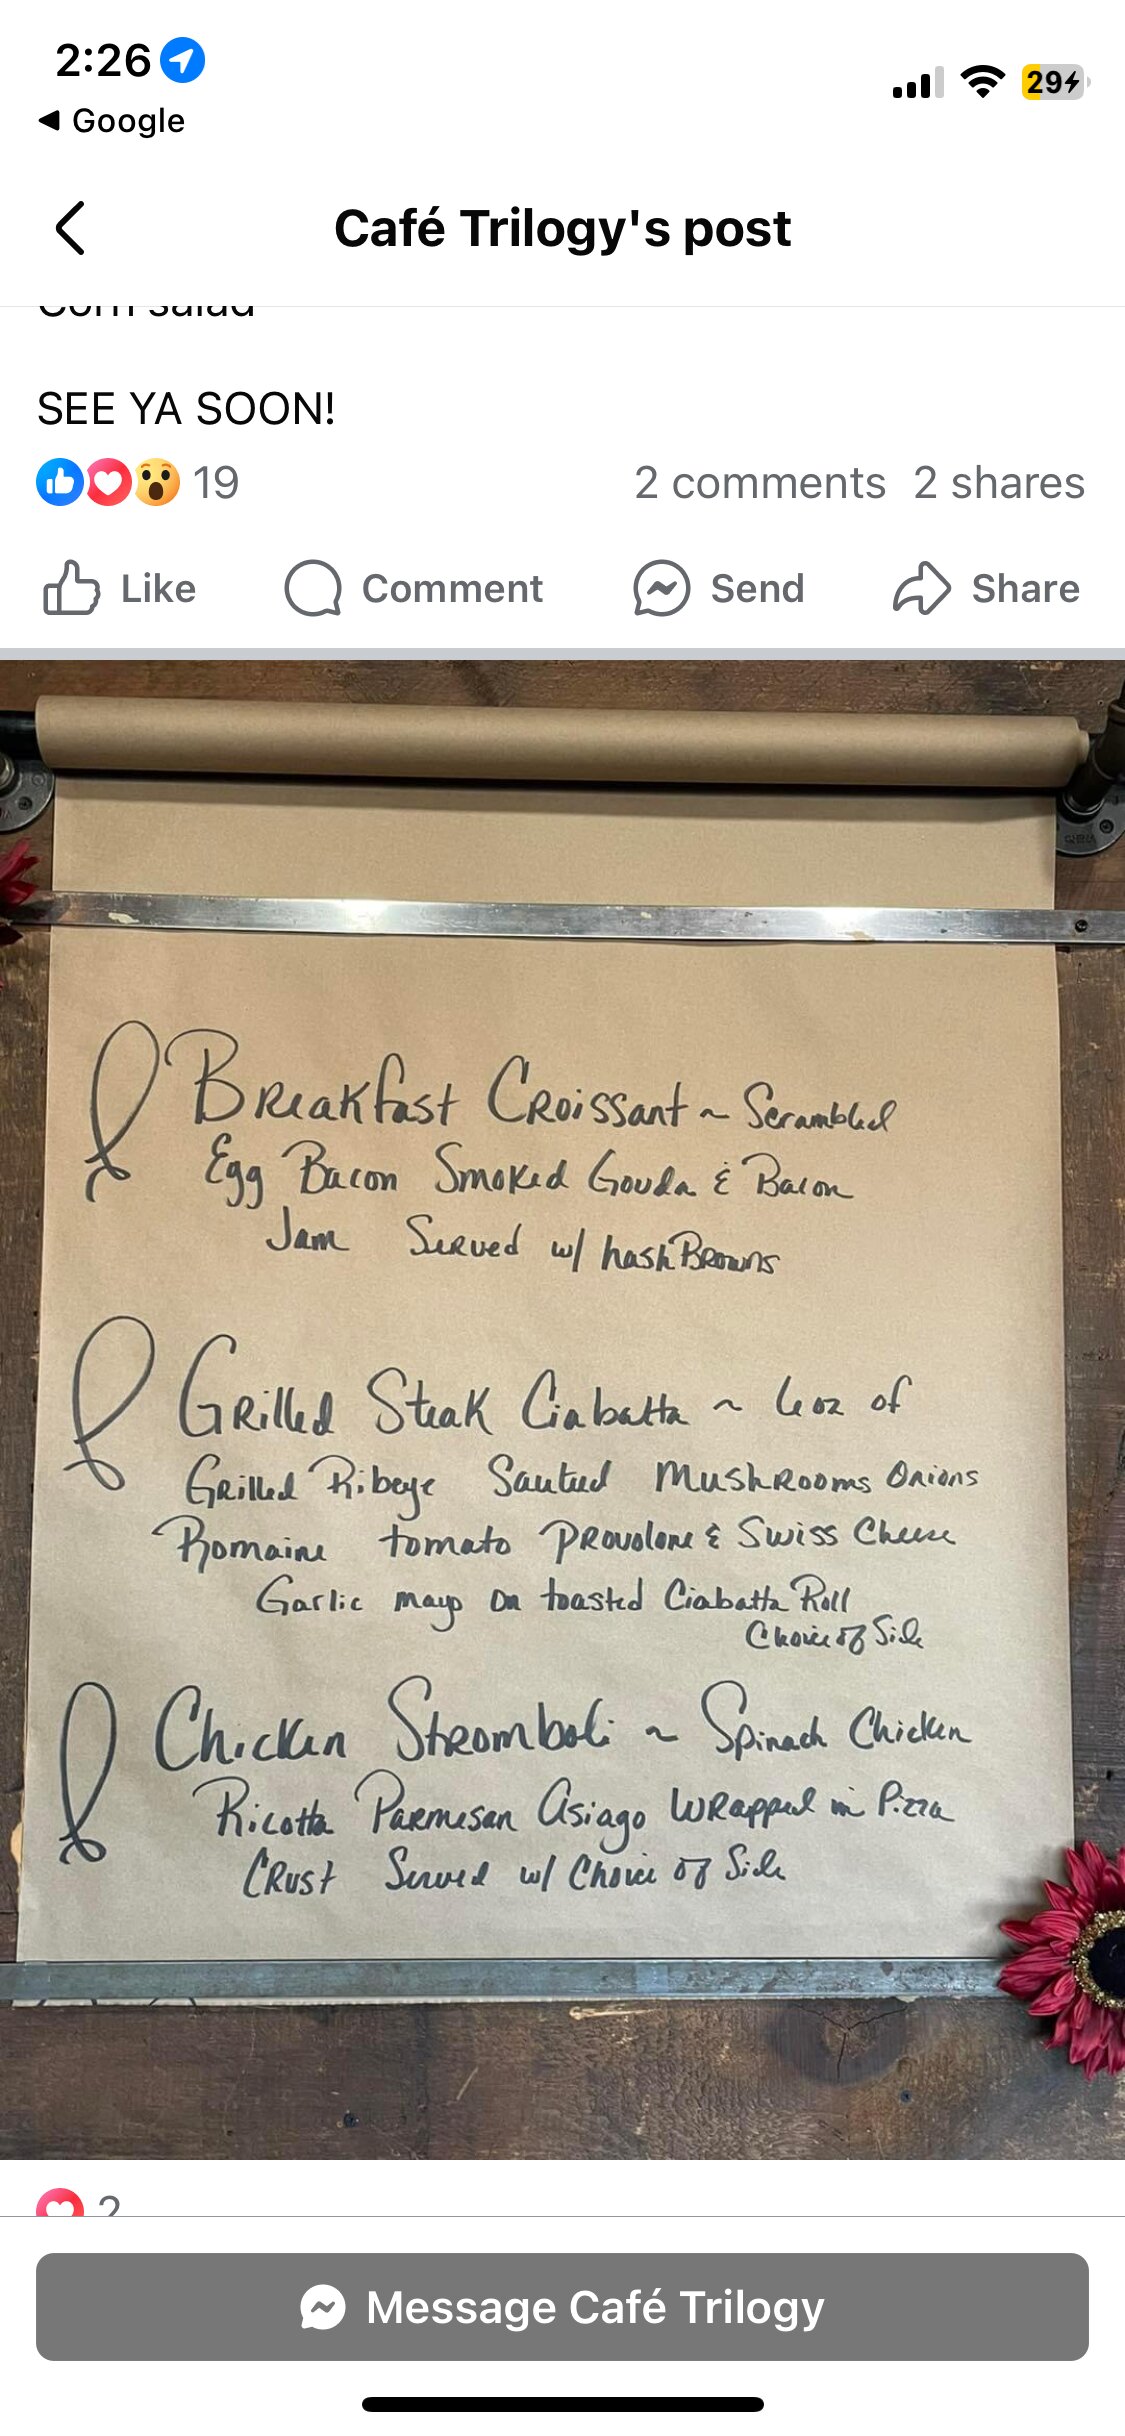 2:26
29
Google
Café Trilogy's post
Corn salad
SEE YA SOON!
19 2 comments 2 shares
Like Comment Send Share
Breakfast Croissant ~ Scrambled
Egg Bacon Smoked Gouda & Bacon
Jam Served w/ hashBrowns
Grilled Steak Ciabatta ~ 6 oz of
Grilled Ribeye Sauteed Mushrooms Onions
Romaine tomato Provolone & Swiss Cheese
Garlic mayo on toasted Ciabatta Roll
Choice of Side
Chicken Stromboli ~ Spinach Chicken
Ricotta Parmesan Asiago Wrapped in Pizza
Crust Served w/ Choice of Side
2
Message Café Trilogy